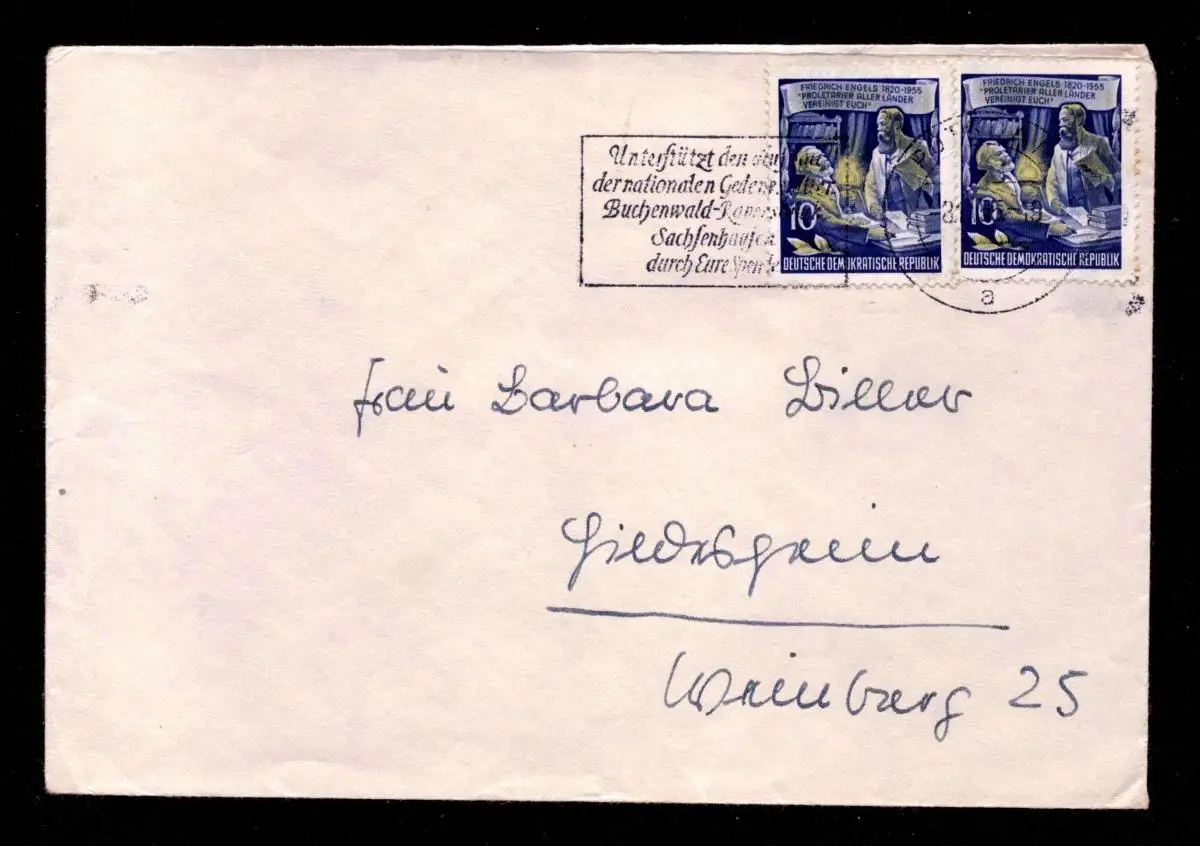 FRIEDRICH ENGELS 1820-1955
"PROLETARIER ALLER LÄNDER
VEREINIGT EUCH"
10
DEUTSCHE DEMOKRATISCHE REPUBLIK
FRIEDRICH ENGELS 1820-1955
"PROLETARIER ALLER LÄNDER
VEREINIGT EUCH"
10
DEUTSCHE DEMOKRATISCHE REPUBLIK
Unterstützt den
der nationalen
Buchenwald-
Sachsenhausen
durch Eure Spende
a
Frau Barbara
Hildesheim
Weinberg 25